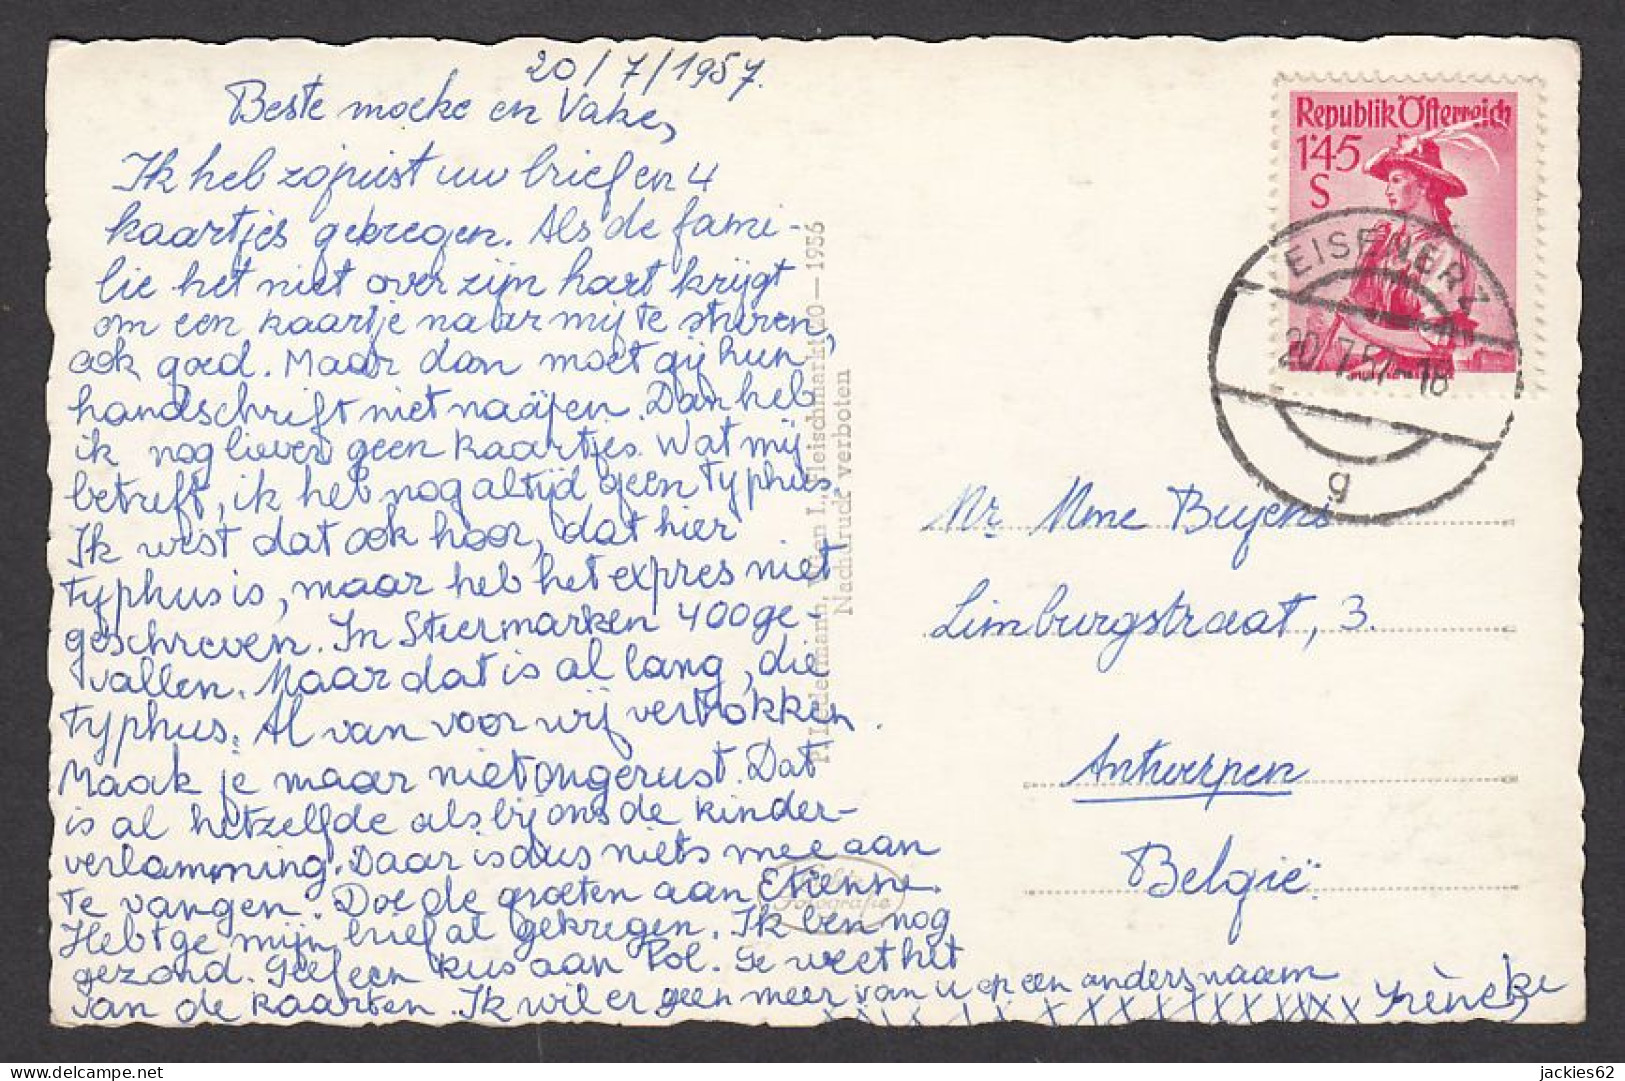 20/7/1957.
Beste moeke en Vake,
Ik heb zojuist uw brief en 4
kaartjes gekregen. Als de fami-
lie het niet over zijn hart krijgt
om een kaartje naar mij te sturen,
ook goed. Maar dan moet gij hun
handschrift niet naäpen. Dan heb
ik nog liever geen kaartjes. Wat mij
betreft, ik heb nog altijd geen typhus.
Ik wist dat ook hoor, dat hier
typhus is, maar heb het expres niet
geschreven. In Stiermarken 400 ge-
vallen. Maar dat is al lang, die
typhus. Al van voor wij vertrokken.
Maak je maar niet ongerust. Dat
is al hetzelfde als bij ons de kinder-
verlamming. Daar is dus niets mee aan
te vangen. Doe de groeten aan Etienne.
Hebt ge mijn brief al gekregen. Ik ben nog
gezond. Geef een kus aan Pol. Ge weet het
van de kaarten. Ik wil er geen meer van u op een anders naam
Irèneke
P. Ledermann, Wien I., Fleischmarkt 20 — 1956
Nachdruck verboten
Fotografie
Republik Österreich
1'45
S
EISENERZ
20.7.57.-18
g
Mr Mme Buyens
Limburgstraat, 3.
Antwerpen
België
jackies62